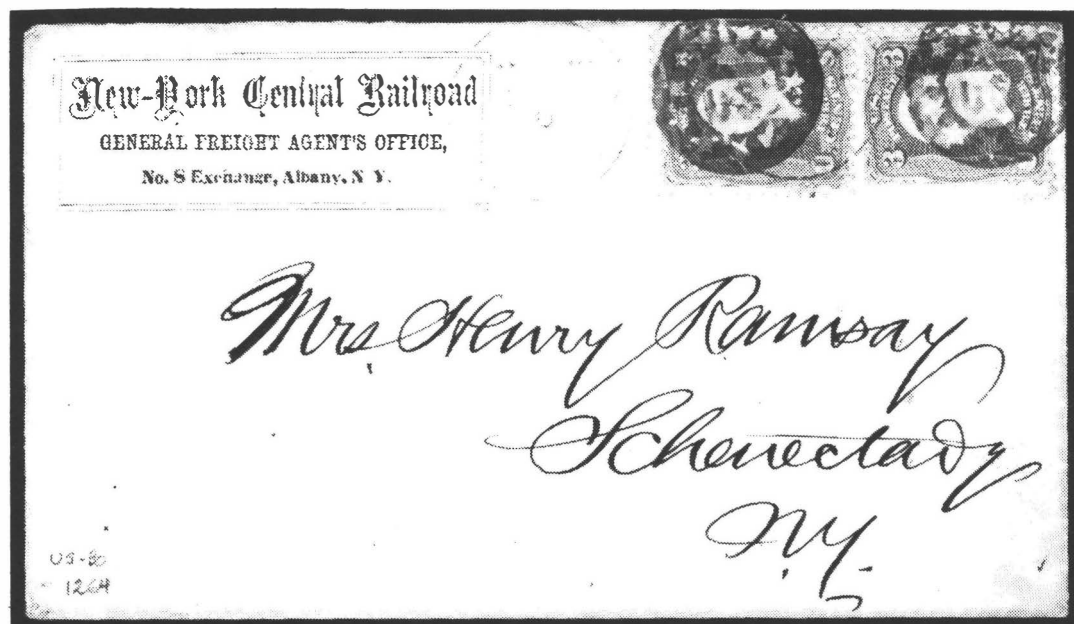 New-York Central Railroad
GENERAL FREIGHT AGENT'S OFFICE,
No. 8 Exchange, Albany, N Y.
Mrs Henry Ramsay
Schenectady
N.Y.
1264